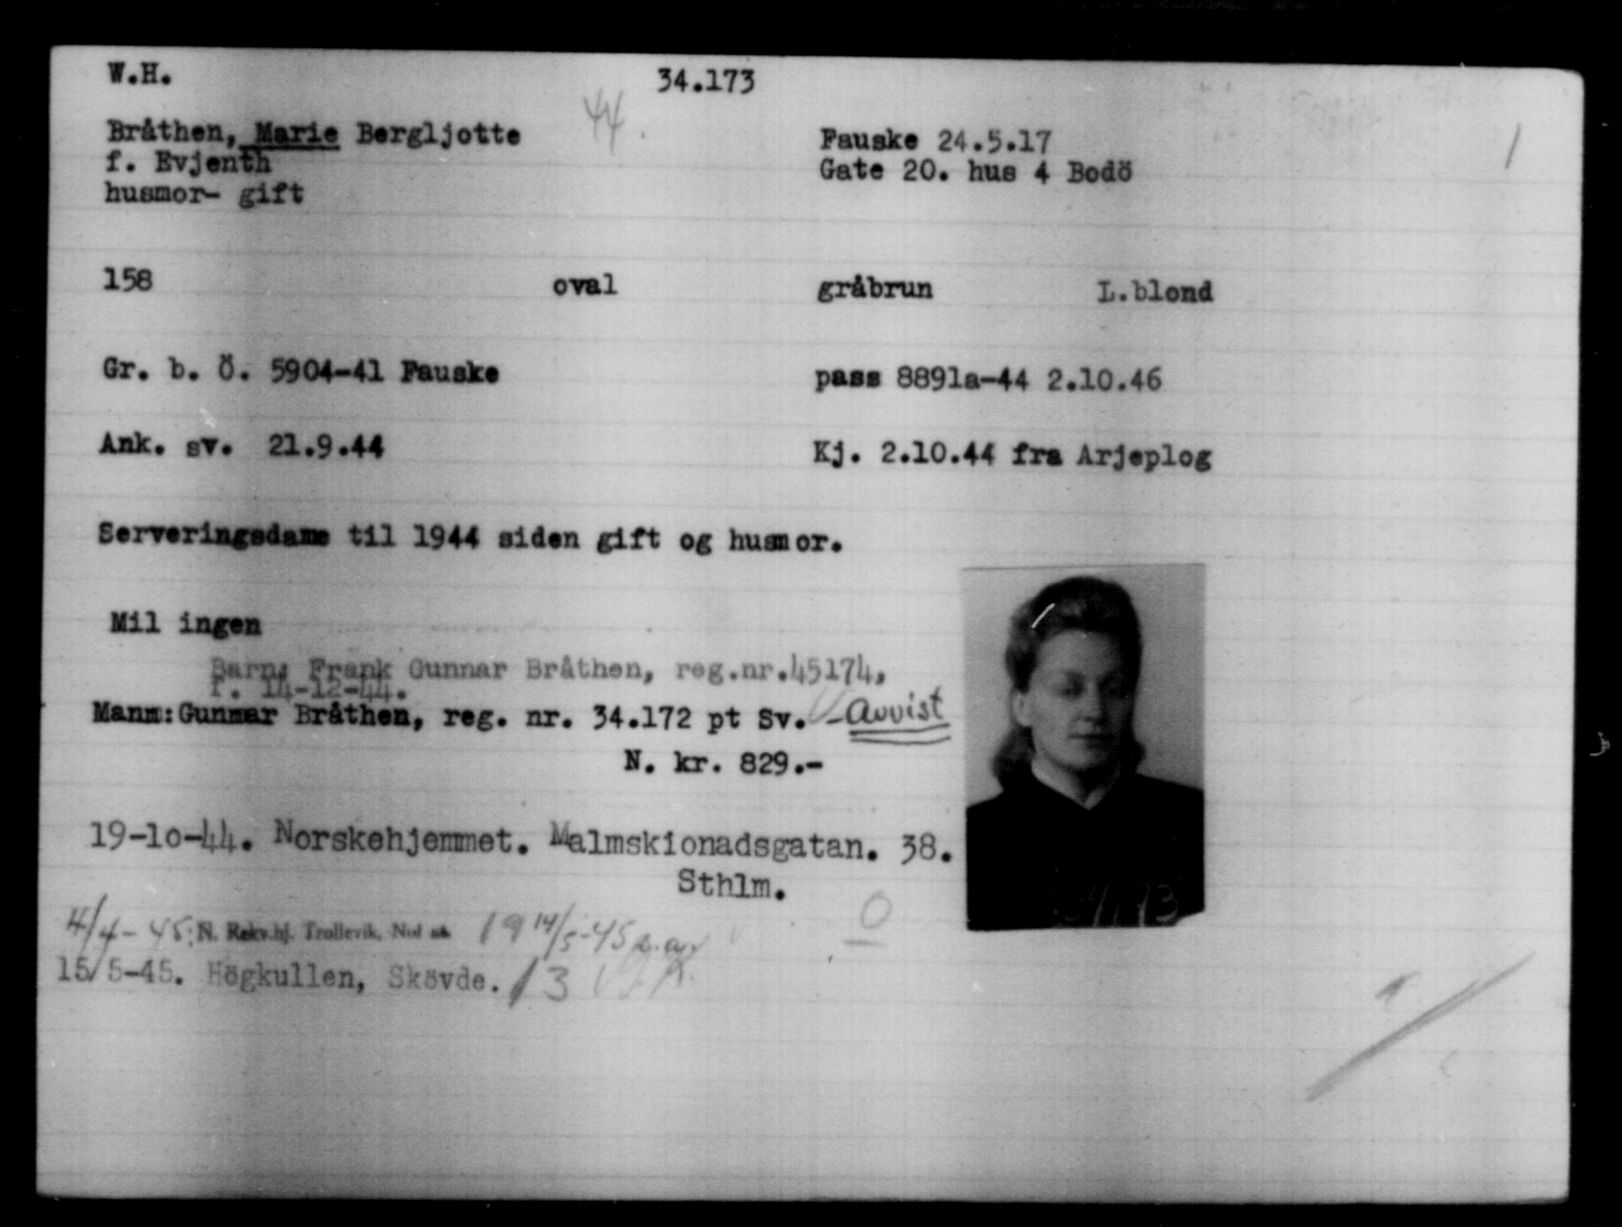 W.H. 34.173
44.
Bråthen, Marie Bergljotte Fauske 24.5.17 1
f. Evjenth Gate 20. hus 4 Bodö
husmor- gift
158 oval gråbrun L.blond
Gr. b. Ö. 5904-41 Fauske pass 8891a-44 2.10.46
Ank. sv. 21.9.44 Kj. 2.10.44 fra Arjeplog
Serveringsdame til 1944 siden gift og husmor.
Mil ingen
Barn: Frank Gunnar Bråthen, reg.nr.45174,
f. 14-12-44.
Mann:Gunnar Bråthen, reg. nr. 34.172 pt Sv. - avvist
N. kr. 829.-
19-10-44. Norskehjemmet. Malmskionadsgatan. 38.
Sthlm. 0
4/4-45. N. Rekv.hj. Trollevik, Nol 19 14/5-45
15/5-45. Högkullen, Skövde. 13